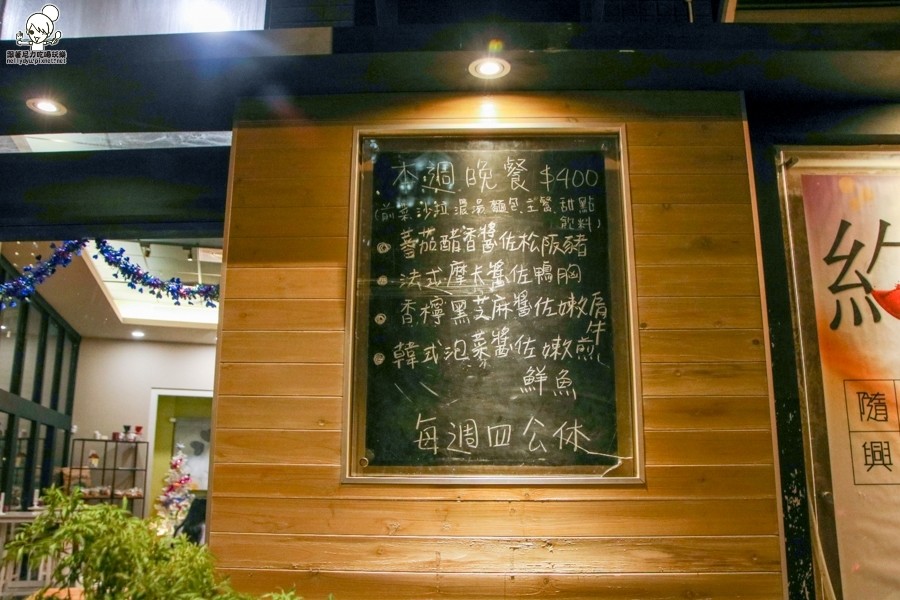 跟著尼力吃喝玩樂
nellydyu.pixnet.net
本週晚餐 $400
(前菜.沙拉.濃湯.麵包.主餐.甜點
飲料)
蕃茄醋香醬佐松阪豬
法式摩卡醬佐鴨胸
香檸黑芝麻醬佐嫩肩
牛
韓式泡菜醬佐嫩煎
鮮魚
每週四公休
約
隨
興